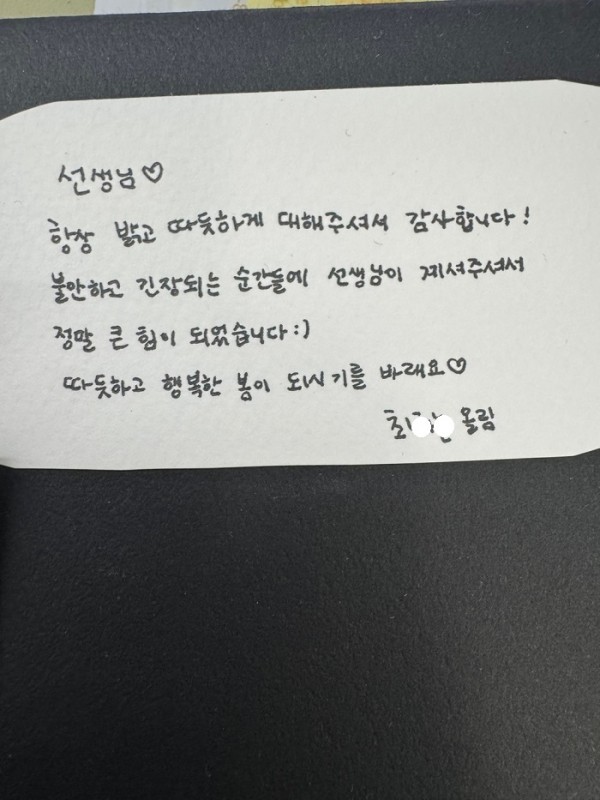 선생님♡
항상 밝고 따듯하게 대해주셔서 감사합니다!
불안하고 긴장되는 순간들에 선생님이 계셔주셔서
정말 큰 힘이 되었습니다:)
따듯하고 행복한 봄이 되시기를 바래요♡
최 올림